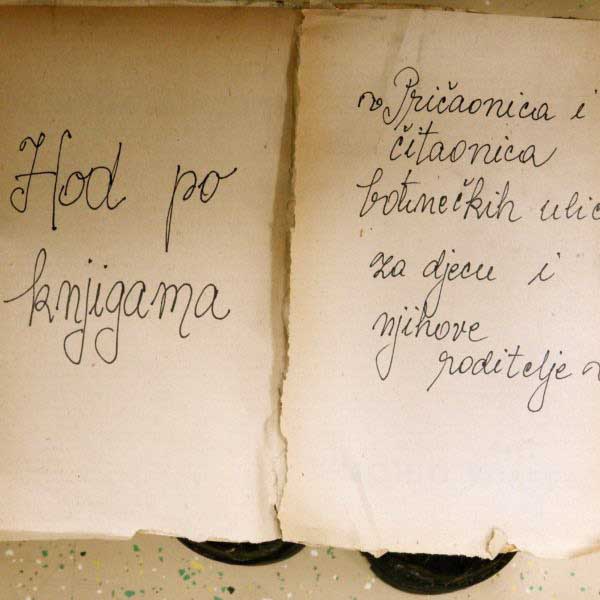 Hod po
knjigama
~ Pričaonica i
čitaonica
botinečkih ulic
za djecu i
njihove
roditelje ~